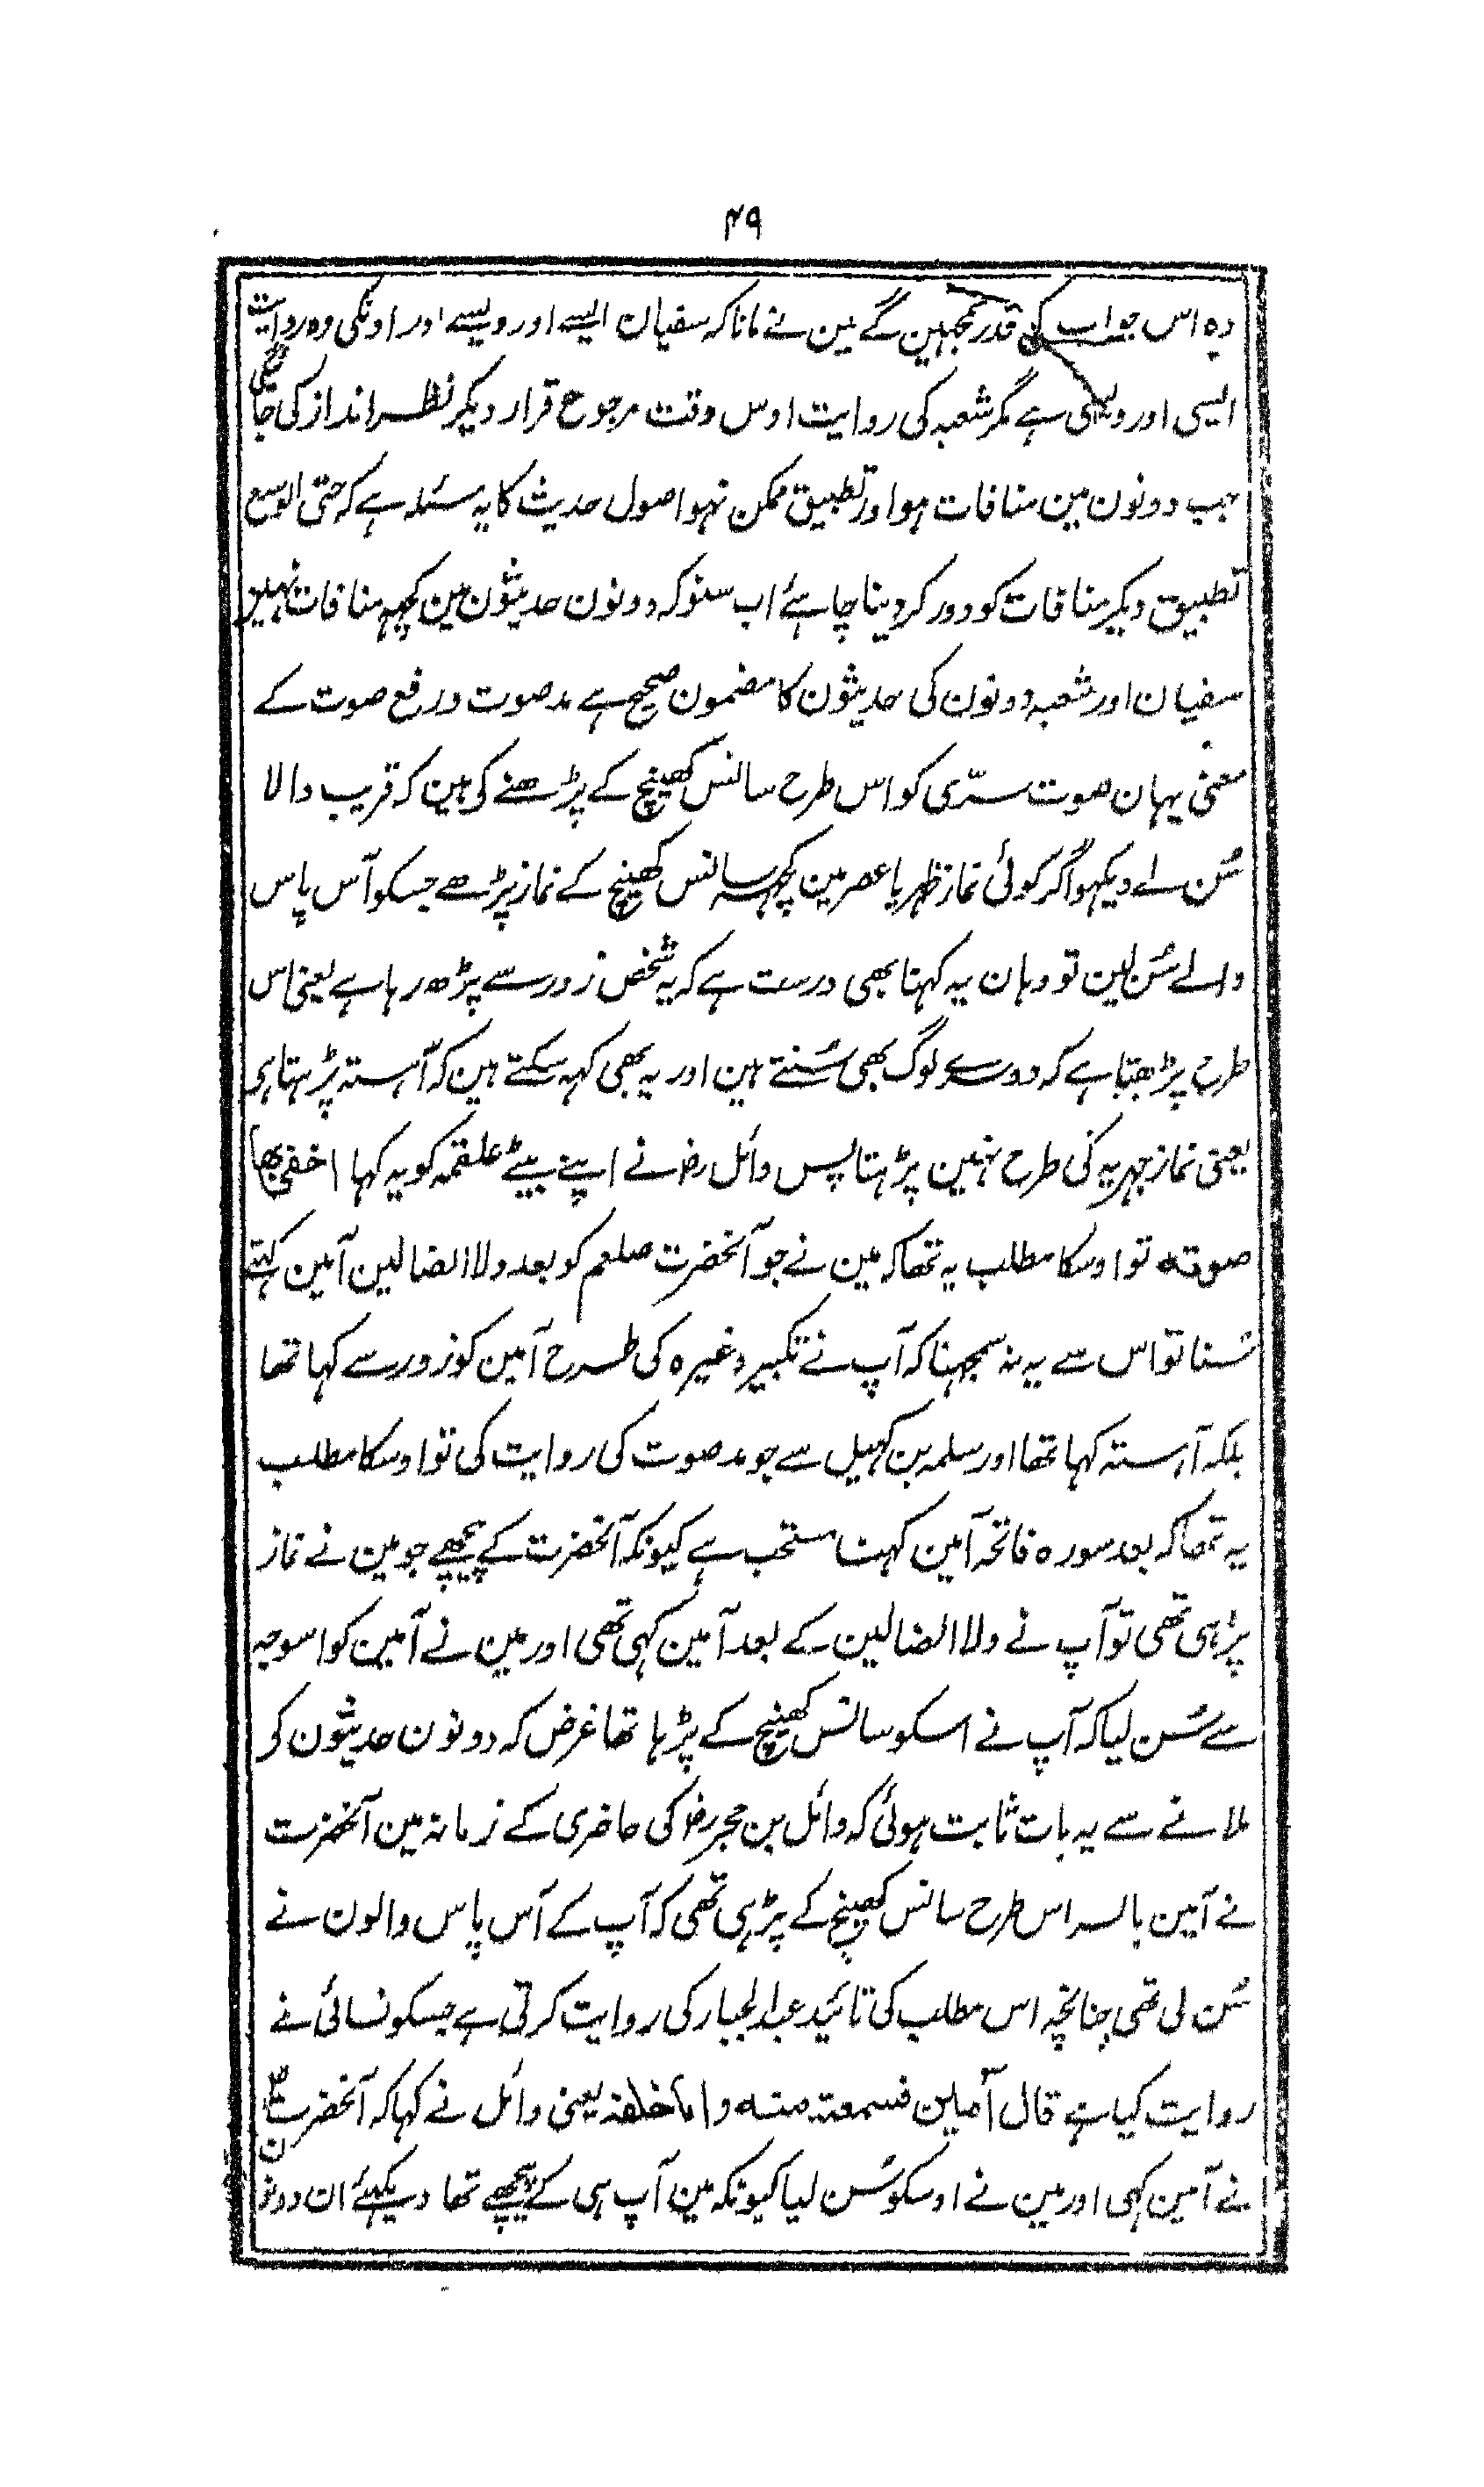 ۴۹
وہ اس جواب کی قدر سمجہین گے مین نے مانا کہ سفیان ایسے اور ویسے اور اونکی وہ روایت
ایسی اور ویسی ہے مگر شعبہ کی روایت اوس وقت مرجوح قرار دیکر نظر انداز کی جائیگی
جب دونون مین منافات ہو اور تطبیق ممکن نہو اصول حدیث کا یہ مسئلہ ہے کہ حتی الوسع
تطبیق دیکر منافات کو دور کر دینا چاہئے اب سنو کہ دونون حدیثون مین کچہہ منافات نہین
سفیان اور شعبہ دونون کی حدیثون کا مضمون صحیح ہے مد صوت و رفع صوت کے
معنی یہان صوت سرّی کو اس طرح سانس کھینچ کے پڑھنے کی ہین کہ قریب والا
سُن لے دیکہو اگر کوئی نماز ظہر یا عصر مین کچہہ سانس کھینچ کے نماز پڑھے جسکو آس پاس
والے سُن لین تو وہان یہ کہنا بھی درست ہے کہ یہ شخص زور سے پڑھ رہا ہے یعنی اس
طرح پڑھتا ہے کہ دوسرے لوگ بھی سُنتے ہین اور یہ بھی کہہ سکتے ہین کہ آہستہ پڑہتا ہی
یعنی نماز جہریہ کی طرح نہین پڑہتا پس وائل رضؓ نے اپنے بیٹے علقمہ کو یہ کہا اخفی بھا
صوتہ تو اوسکا مطلب یہ تھا کہ مین نے جو آنحضرت صلعم کو بعد ولا الضالین آمین کہتے
سُنا تو اس سے یہ نہ سمجہنا کہ آپ نے تکبیر وغیرہ کی طرح آمین کو زور سے کہا تھا
بلکہ آہستہ کہا تھا اور سلمہ بن کہیل سے جو مد صوت کی روایت کی تو اوسکا مطلب
یہ تھا کہ بعد سورہ فاتحہ آمین کہنا مستحب ہے کیونکہ آنحضرت کے پیچھے جو مین نے نماز
پڑہی تھی تو آپ نے ولا الضالین کے بعد آمین کہی تھی اور مین نے آمین کو اسوجہ
سے سُن لیا کہ آپ نے اسکو سانس کھینچ کے پڑہا تھا غرض کہ دونون حدیثون کو
ملانے سے یہ بات ثابت ہوئی کہ وائل بن حجر رضؓ کی حاضری کے زمانہ مین آنحضرت
نے آمین بالسر اس طرح سانس کھینچ کے پڑہی تھی کہ آپ کے آس پاس والون نے
سُن لی تھی چنانچہ اس مطلب کی تائید عبد الجبار کی روایت کرتی ہے جسکو نسائی نے
روایت کیا ہے قال آمین فسمعتہ منہ وانا خلفہ یعنی وائل نے کہا کہ آنحضرتؐ
نے آمین کہی اور مین نے اوسکو سُن لیا کیونکہ مین آپ ہی کے پیچھے تھا دیکہئے ان دونون